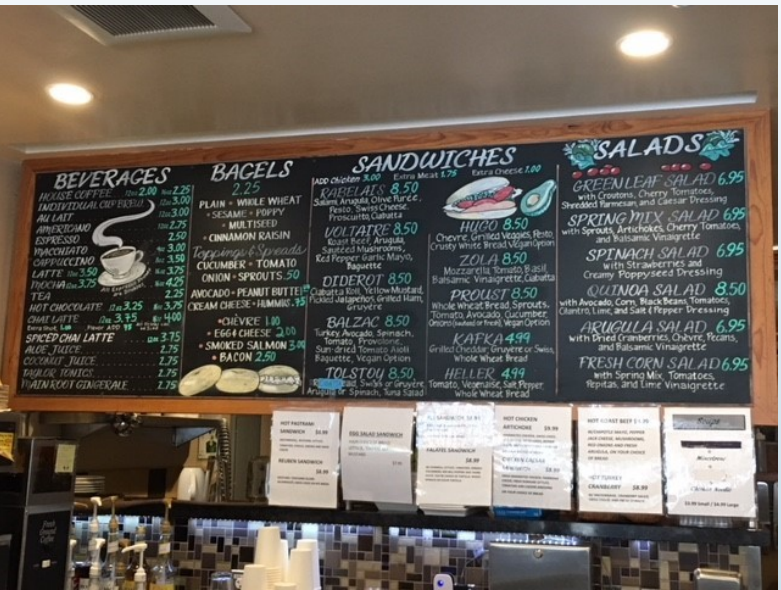 BEVERAGES
HOUSE COFFEE 12oz 2.00 16oz 2.25
INDIVIDUAL CUP BREW 12oz 3.00
AU LAIT 12oz 3.00
AMERICANO 12oz 2.75
ESPRESSO 2.50
MACCHIATO 3.00
CAPPUCCINO 3.50
LATTE 12oz 3.50 16oz 3.75
MOCHA 12oz 3.75 16oz 4.25
TEA 2.25
HOT CHOCOLATE 12oz 3.25 16oz 3.75
CHAI LATTE 12oz 3.75 16oz 4.00
Extra Shot 1.00 Flavor ADD
SPICED CHAI LATTE 12oz 3.75
ALOE JUICE 2.75
COCONUT JUICE 2.75
TAYLOR TONICS 2.75
MAIN ROOT GINGERALE 2.75
BAGELS
2.25
PLAIN • WHOLE WHEAT
• SESAME • POPPY
• MULTISEED
• CINNAMON RAISIN
Toppings & Spreads
CUCUMBER • TOMATO
ONION • SPROUTS .50
AVOCADO • PEANUT BUTTER
CREAM CHEESE • HUMMUS 1.75
• CHÈVRE 1.00
• EGG & CHEESE 2.00
• SMOKED SALMON 3.00
• BACON 2.50
SANDWICHES
ADD Chicken 3.00 Extra Meat 1.75 Extra Cheese 1.00
RABELAIS 8.50
Salami, Arugula, Olive Puree,
Pesto, Swiss Cheese,
Prosciutto, Ciabatta
VOLTAIRE 8.50
Roast Beef, Arugula,
Sautéed Mushrooms,
Red Pepper Garlic Mayo,
Baguette
DIDEROT 8.50
Ciabatta Roll, Yellow Mustard,
Pickled Jalapeños, Grilled Ham,
Gruyère
BALZAC 8.50
Turkey, Avocado, Spinach,
Tomato, Provolone,
Sun-dried Tomato Aioli
Baguette, Vegan Option
TOLSTOY 8.50
Bread, Swiss or Gruyère,
Arugula or Spinach, Tuna Salad
HUGO 8.50
Chèvre, Grilled Veggies, Pesto,
Crusty White Bread, Vegan Option
ZOLA 8.50
Mozzarella, Tomato, Basil
Balsamic Vinaigrette, Ciabatta
PROUST 8.50
Whole Wheat Bread, Sprouts,
Tomato, Avocado, Cucumber,
Onions (sautéed or fresh), Vegan Option
KAFKA 4.99
Grilled Cheddar, Gruyère or Swiss,
Whole Wheat Bread
HELLER 4.99
Tomato, Vegenaise, Salt Pepper,
Whole Wheat Bread
SALADS
GREEN LEAF SALAD 6.95
with Croutons, Cherry Tomatoes,
Shredded Parmesan, and Caesar Dressing
SPRING MIX SALAD 6.95
with Sprouts, Artichokes, Cherry Tomatoes,
and Balsamic Vinaigrette
SPINACH SALAD 6.95
with Strawberries and
Creamy Poppyseed Dressing
QUINOA SALAD 8.50
with Avocado, Corn, Black Beans, Tomatoes,
Cilantro, Lime, and Salt & Pepper Dressing
ARUGULA SALAD 6.95
with Dried Cranberries, Chèvre, Pecans,
and Balsamic Vinaigrette
FRESH CORN SALAD 6.95
with Spring Mix, Tomatoes,
Pepitas, and Lime Vinaigrette
HOT PASTRAMI
SANDWICH $8.99
REUBEN SANDWICH
$8.99
EGG SALAD SANDWICH
FALAFEL SANDWICH
$8.99
HOT CHICKEN
ARTICHOKE $9.99
HOT ROAST BEEF $9.99
HOT TURKEY
CRANBERRY $8.99
$3.99 Small / $4.99 Large
Fresh
Ground
Coffee